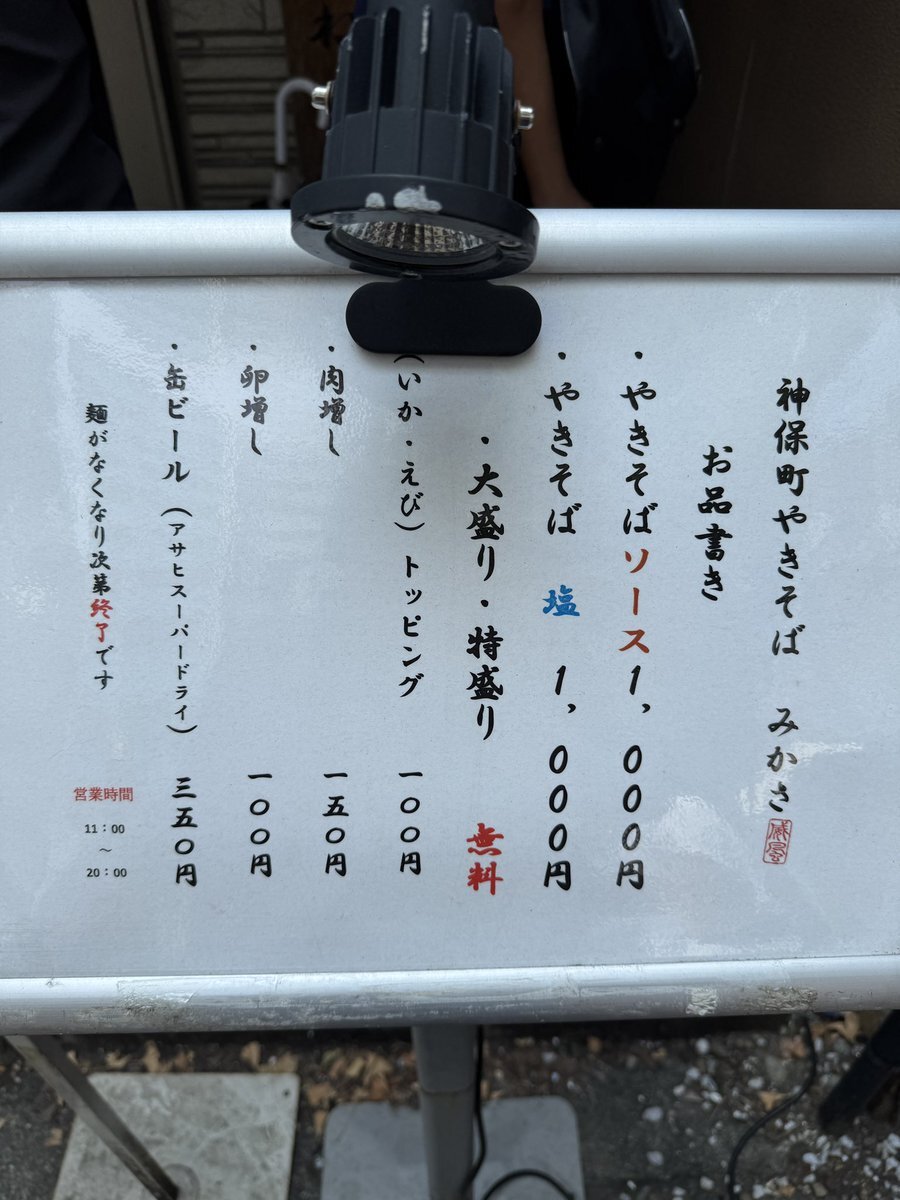 神保町やきそば みかさ
お品書き
・やきそばソース1,000円
・やきそば 塩 1,000円
・大盛り・特盛り 無料
(いか・えび)トッピング 一〇〇円
・肉増し 一五〇円
・卵増し 一〇〇円
・缶ビール (アサヒスーパードライ) 三五〇円
麺がなくなり次第終了です
営業時間
11:00
~
20:00